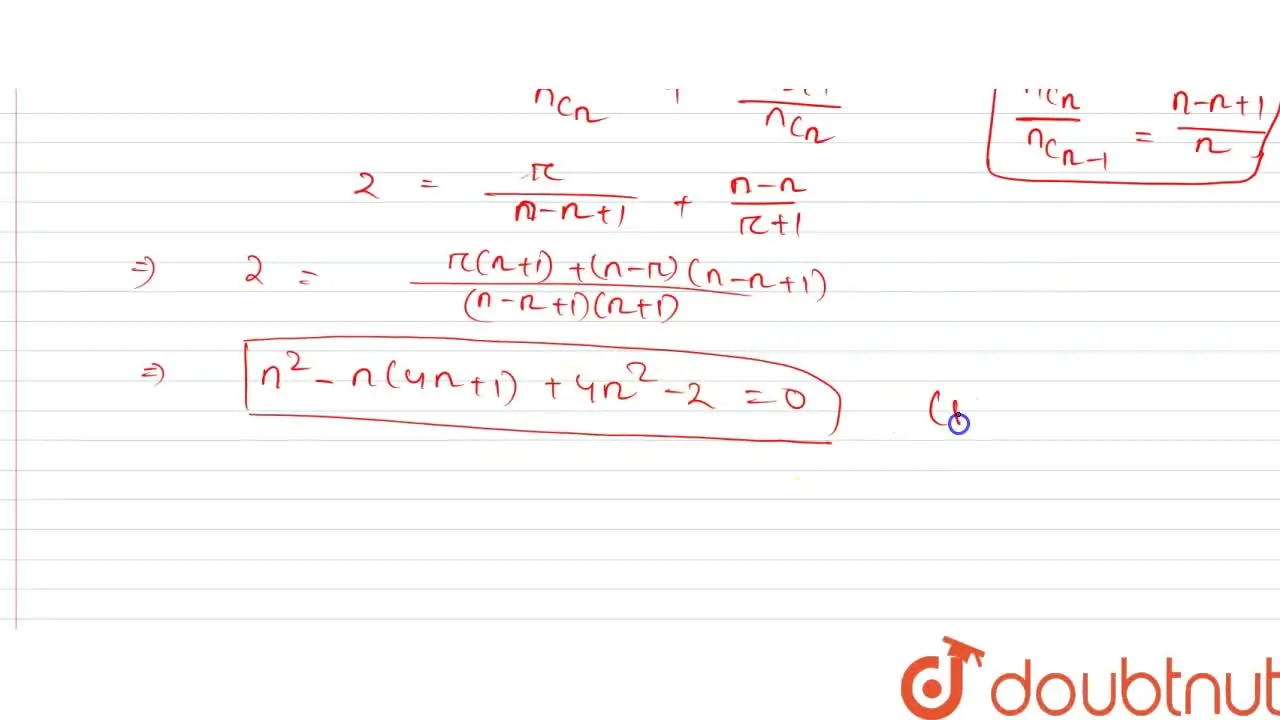 nCr + nCr
nCr-1 = n-r+1 / r
2 = r / n-r+1 + n-r / r+1
⇒ 2 = r(r+1) + (n-r)(n-r+1) / (n-r+1)(r+1)
⇒ n² - n(4r+1) + 4r² - 2 = 0
doubtnut